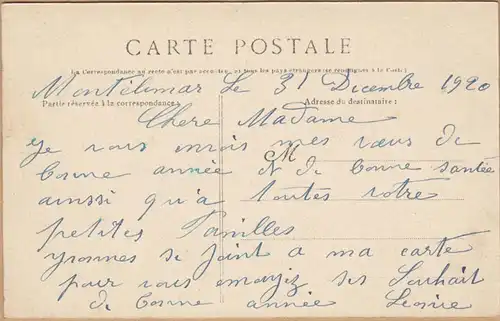 CARTE POSTALE
La Correspondance au recto n'est pas acceptée par tous les pays étrangers (se renseignez à la Poste)
Montélimar Le 31 Decembre 1920
Partie réservée à la correspondance. Adresse du destinataire :
Chere Madame
Je vous envois mes vœux de
M
bonne année N de bonne santée
ainssi qu'a toutes votre
petites Familles
yvonnes se joint a ma carte
pour vous envoyiz ses Souhait
de bonne année Leonie